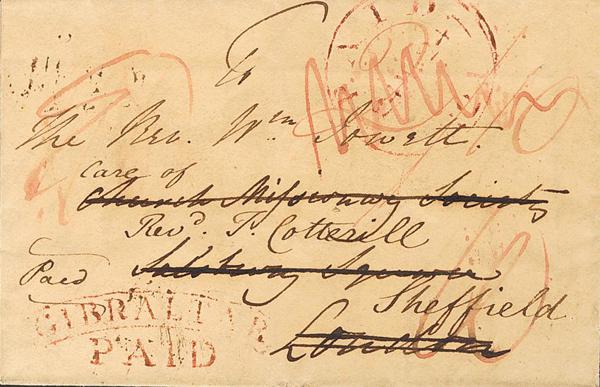 To
The Rev. Wm Jowett.
care of
Church Missionary Society
Revd. T. Cotterill
Paid Salisbury Square
Sheffield
London
GIBRALTAR
PAID